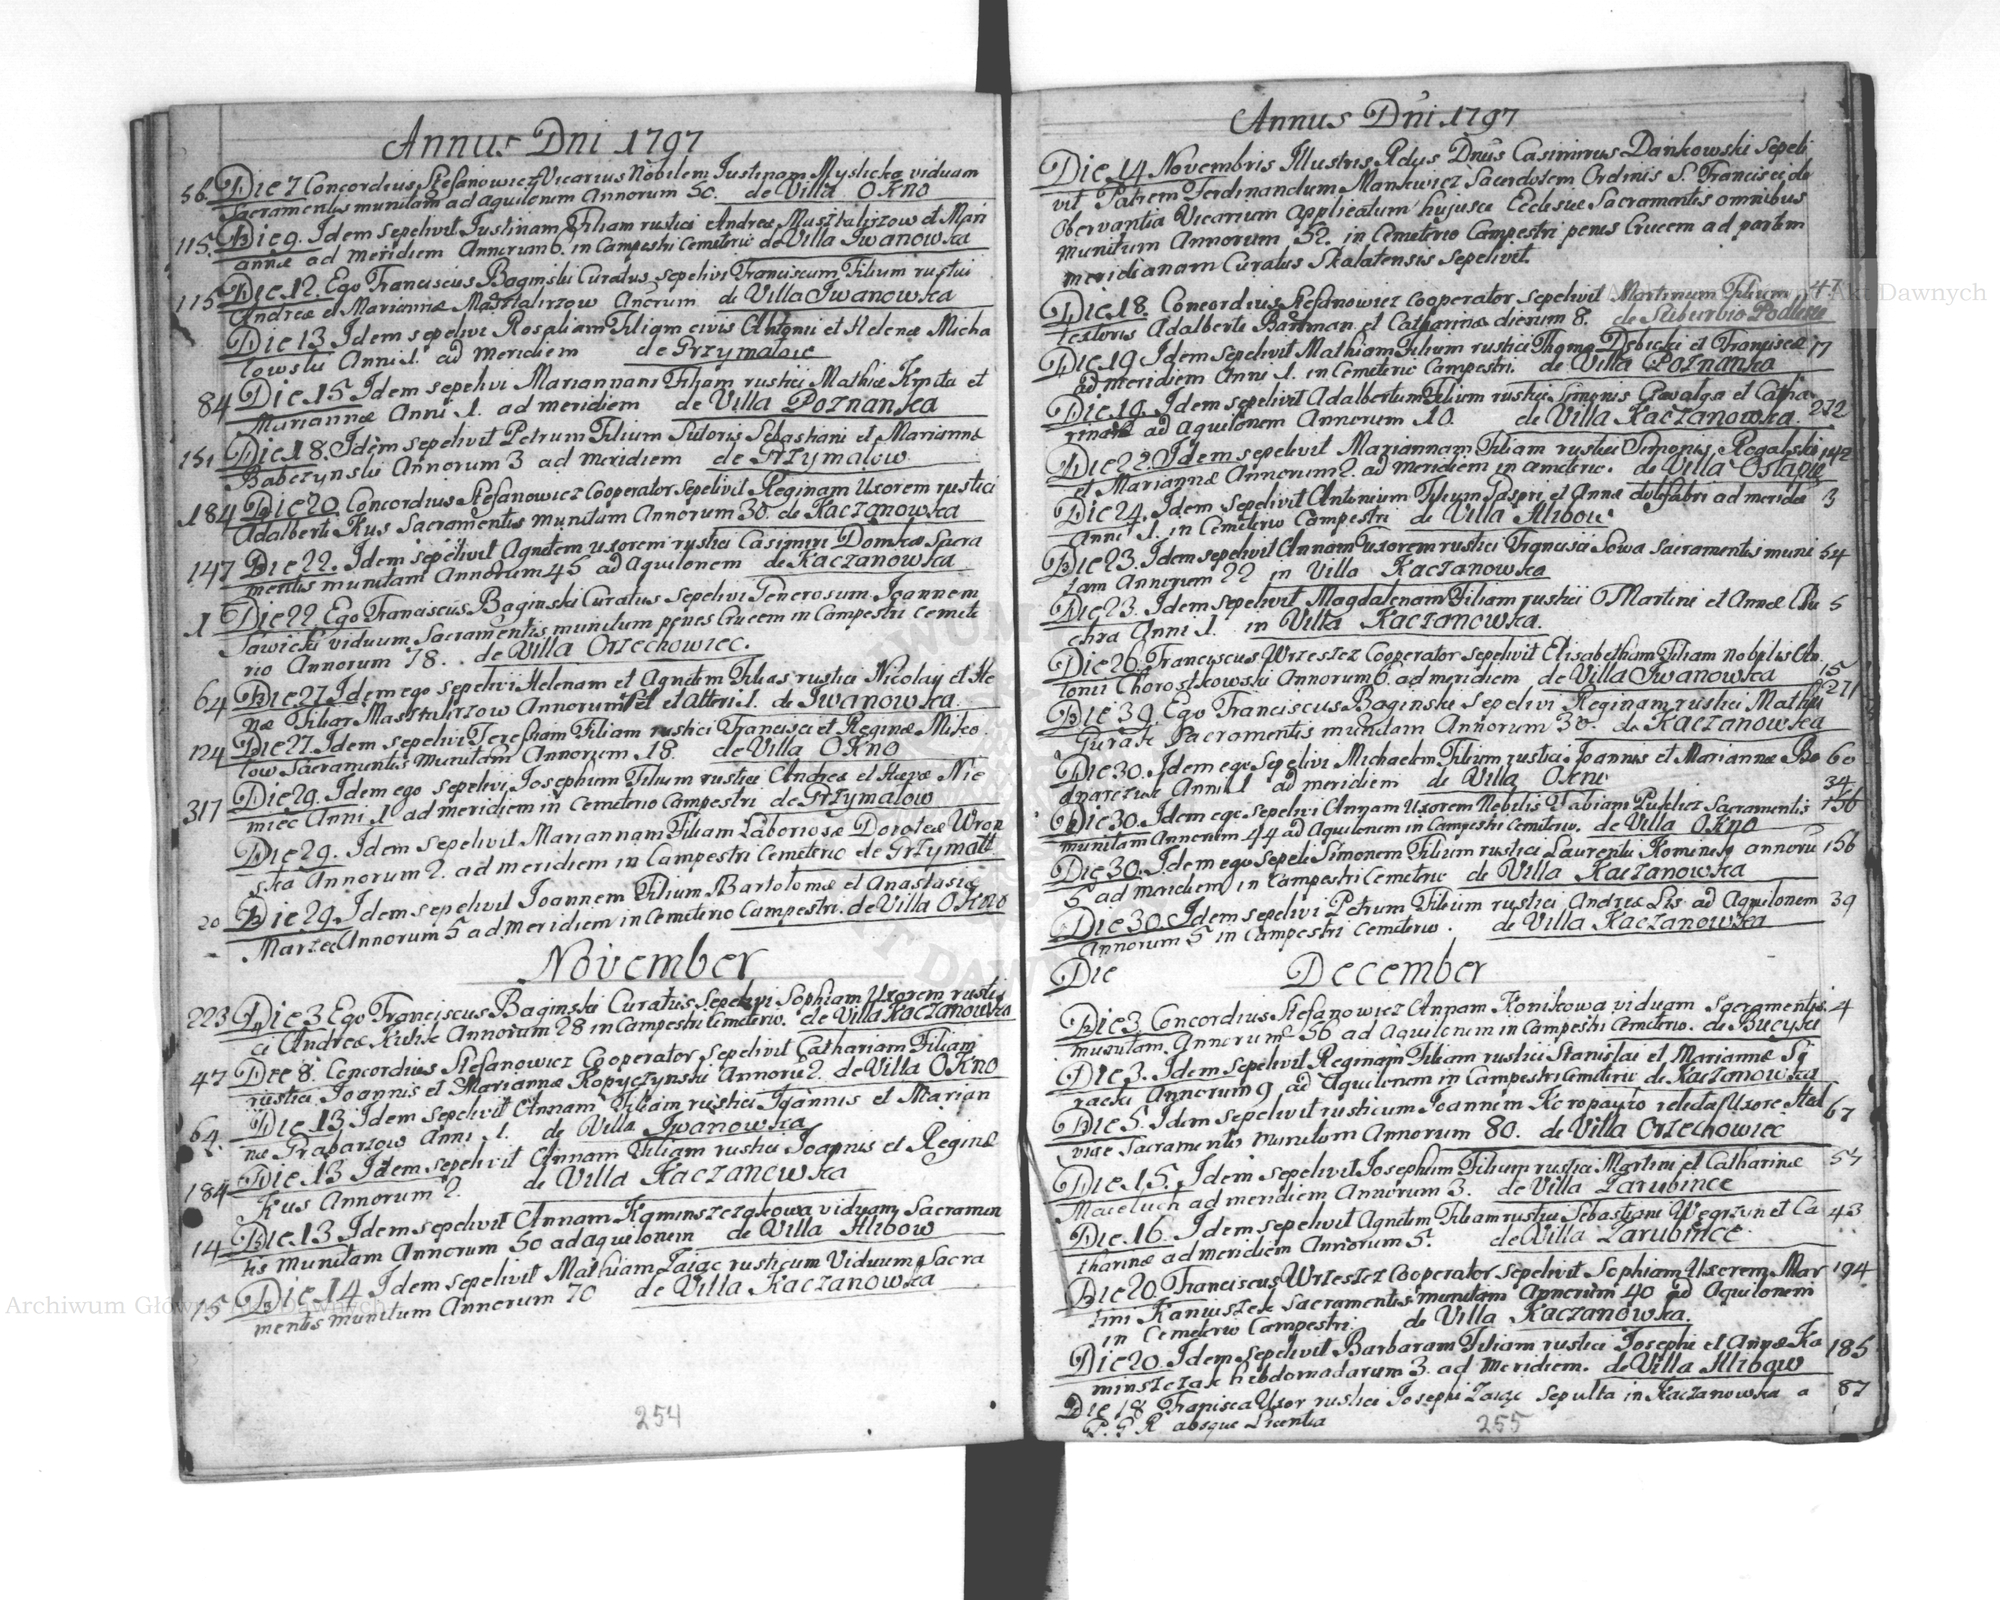 Annus Dni 1797
56. Die 7 Concordius Stefanowicz Vicarius Nobilem Justinam Myslicka viduam
Sacramentis munitam ad aquilonem Annorum 50. de Villa OKno
115. Die 9. Idem sepelivit Justinam Filiam rustici Andreæ Musztalirzow et Mari
annæ ad meridiem Annorum 6. in Campestri Cemeterio de Villa Iwanowka
115 Die 12. Ego Franciscus Baginski Curatus sepelivi Franciscum Filium rustici
Andreæ et Mariannæ Masztalirzow Anorum de Villa Iwanowka
Die 13 Idem sepelivi Rosaliam Filiam civis Antonii et Helenæ Micha
lowski Anni 1. ad meridiem de Grzymalow
84 Die 15 Idem sepelivi Mariannam Filiam rustici Mathiæ Kmita et
Mariannæ Anni 1. ad meridiem de Villa Poznanka
151 Die 18. Idem sepelivit Petrum Filium Sutoris Sebastiani et Mariannæ
Babczynski Annorum 3 ad meridiem de Grzymalow
184 Die 20. Concordius Stefanowicz Cooperator Sepelivit Reginam Uxorem rustici
Adalberti Kus Sacramentis munitam Annorum 30. de Kaczanowka
147 Die 22. Idem sepelivit Agnetem uxorem rustici Casimiri Domka Sacra
mentis munitam Annorum 45 ad Aquilonem de Kaczanowka
1 Die 22. Ego Franciscus Baginski Curatus Sepelivi Generosum Joannem
Sawicki viduum Sacramentis munitum penes Crucem in Campestri Cemete
rio Annorum 78. de Villa Orzechowiec.
64 Die 27 Idem ego sepelivi Helenam et Agnetem Filias rustici Nicolay et He
næ Masztalirzow Annorum et alteri 1. de Iwanowka
124 Die 27. Idem sepelivi Teressiam Filiam rustici Francisci et Reginæ Mis
low Sacramentis Munitam Annorum 18. de Villa OKno
317 Die 29. Idem ego sepelivi Josephum Filium rustici Andreæ et Nie
miec Anni 1 ad meridiem in Cemeterio Campestri de Grzymalow
Die 29. Idem sepelivit Mariannam Filiam Laboriosæ Doroteæ Wron
ska Annorum 2. ad meridiem in Campestri Cemeterio de Grzymall
20 Die 29. Idem sepelivit Joannem Filium Bartolomæ et Anastasiæ
Marzec Annorum 5 ad meridiem in Cemeterio Campestri. de Villa OKno
November
223 Die 3 Ego Franciscus Baginski Curatus Sepelivi Sophiam Uxorem rusti
ci Andreæ Kulik Annorum 28 in Campestri Cemeterio. de Villa Kaczanowka
47 Die 8. Concordius Stefanowicz Cooperator Sepelivit Cathariam Filiam
rustici Joannis et Mariannæ Kopyczynski Annoru 2. de Villa OKno
64. Die 13 Idem sepelivit Annam Filiam rustici Joannis et Marian
næ Grabarzow Anni 1. de Villa Iwanowka
184 Die 13 Idem sepelivit Annam Filiam rustici Joannis et Reginæ
Kus Annorum 2. de Villa Kaczanowka
14 Die 13 Idem sepelivit Annam Kaminszczakowa viduam Sacramen
tis munitam Annorum 50 ad aquilonem de Villa Hlibow
15 Die 14 Idem sepelivit Mathiam Zaiąc rusticum Viduum Sacra
mentis munitum Annorum 70 de Villa Kaczanowka
254
Annus Dni 1797
Die 14 Novembris Illustris Rdus Dnus Casimirus Dankowski Sepeli
vit Patrem Ferdinandum Mankiewicz Sacerdotem Ordinis S. Francisci de
Observantia Vicarium applicatum hujusce Ecclesiæ Sacramentis omnibus
munitum Annorum 52. in Cemeterio Campestri penes Crucem ad partem
meridianam Curatus Skalatensis Sepelivit
Die 18. Concordius Stefanowicz Cooperator sepelivit Martinum Filium 47
textoris Adalberti Bartman et Catharinæ dierum 8. de Suburbio Podlesie
Die 19 Idem sepelivit Mathiam Filium rustici Thoma Debicki et Franciscæ 17
ad meridiem Anni 1. in Cemeterio Campestri. de Villa Poznanka
Die 19. Idem sepelivit Adalbertum Filium rustici Simonis Gawalga et Catha 272
rinæ ad Aquilonem Annorum 10. de Villa Kaczanowka.
Die 22. Idem sepelivit Mariannam Filiam rustici Simonis Rogalski 142
et Mariannæ Annorum 2. ad meridiem in Cmeterio. de Villa Ostapie
Die 24. Idem sepelivit Antonium Filium Gaspri et Annæ fabri ad meridie 3
Anni 1. in Cemeterio Campestri de Villa Hlibow
Die 23. Idem sepelivit Annam Uxorem rustici Francisci Sowa Sacramentis muni 54
tam Annorum 22 in Villa Kaczanowka
Die 23. Idem Sepelivit Magdalenam Filiam rustici Martini et Annæ Chu 5
chra Anni 1. in Villa Kaczanowka.
Die 26. Franciscus Wrzeszcz Cooperator sepelivit Elisabetham Filiam nobilis An
tonii Chorostkowski Annorum 6. ad meridiem de Villa Iwanowka 15
Die 30. Ego Franciscus Baginski Sepelivi Reginam rustici Mathiæ 271
Guraк Sacramentis munitam Annorum 30. de Kaczanowka
Die 30. Idem ego Sepelivi Michaelem Filium rustici Joannis et Mariannæ Bo 60
dnarczuk Anni 1 ad meridiem de Villa Okno
34
Die 30. Idem ego sepelivi Annam Uxorem Nobilis Fabiani Sacramentis 156
munitam Annorum 44 ad Aquilonem in Campestri Cemeterio. de Villa OKno
Die 30. Idem ego sepeli Simonem Filium rustici Laurentii Kominek annoru 156
5 ad meridiem in Campestri Cemeterio de Villa Kaczanowka
Die 30. Idem sepelivi Petrum Filium rustici Andreæ Lis ad Aquilonem 39
Annorum 5 in Campestri Cemeterio. de Villa Kaczanowka
Die December
Die 3 Concordius Stefanowicz Annam Konikowa viduam Sacramentis 4
munitam Annorum 56 ad Aquilonem in Campestri Cmeterio. de Bucyki
Die 3. Idem sepelivit Reginam Filiam rustici Stanislai et Mariannæ Sy
racki Annorum 9 ad Aquilonem in Campestri Cemeterio de Kaczanowka
Die 5. Idem sepelivit rusticum Joannem Koropayto relicta Uxore Hal 67
Sacramentis munitum Annorum 80. de Villa Orzechowiec
Die 15. Idem sepelivit Josephum Filium rustici Martini et Catharinæ 57
Macetuch ad meridiem Annorum 3. de Villa Zarubince
Die 16. Idem sepelivit Agnetem Filiam rustici Sebastiani Wegrzyn et Ca 43
tharinæ ad meridiem Annorum 5. de Villa Zarubince
Die 20 Franciscus Wrzeszcz Cooperator Sepelivit Sophiam Uxorem Mar 194
tini Kaniuszek Sacramentis munitam Annorum 40 ad Aquilonem
in Cemeterio Campestri. de Villa Kaczanowka.
Die 20. Idem sepelivit Barbaram Filiam rustici Josephi et Annæ Ka 185
minszczak hebdomadarum 3. ad Meridiem. de Villa Hlibow
Die 18 Francisca Uxor rustici Josephi Zaiąc Sepulta in Kaczanowka a 87
P. G R absque Licentia
255
Archiwum Główne Akt Dawnych